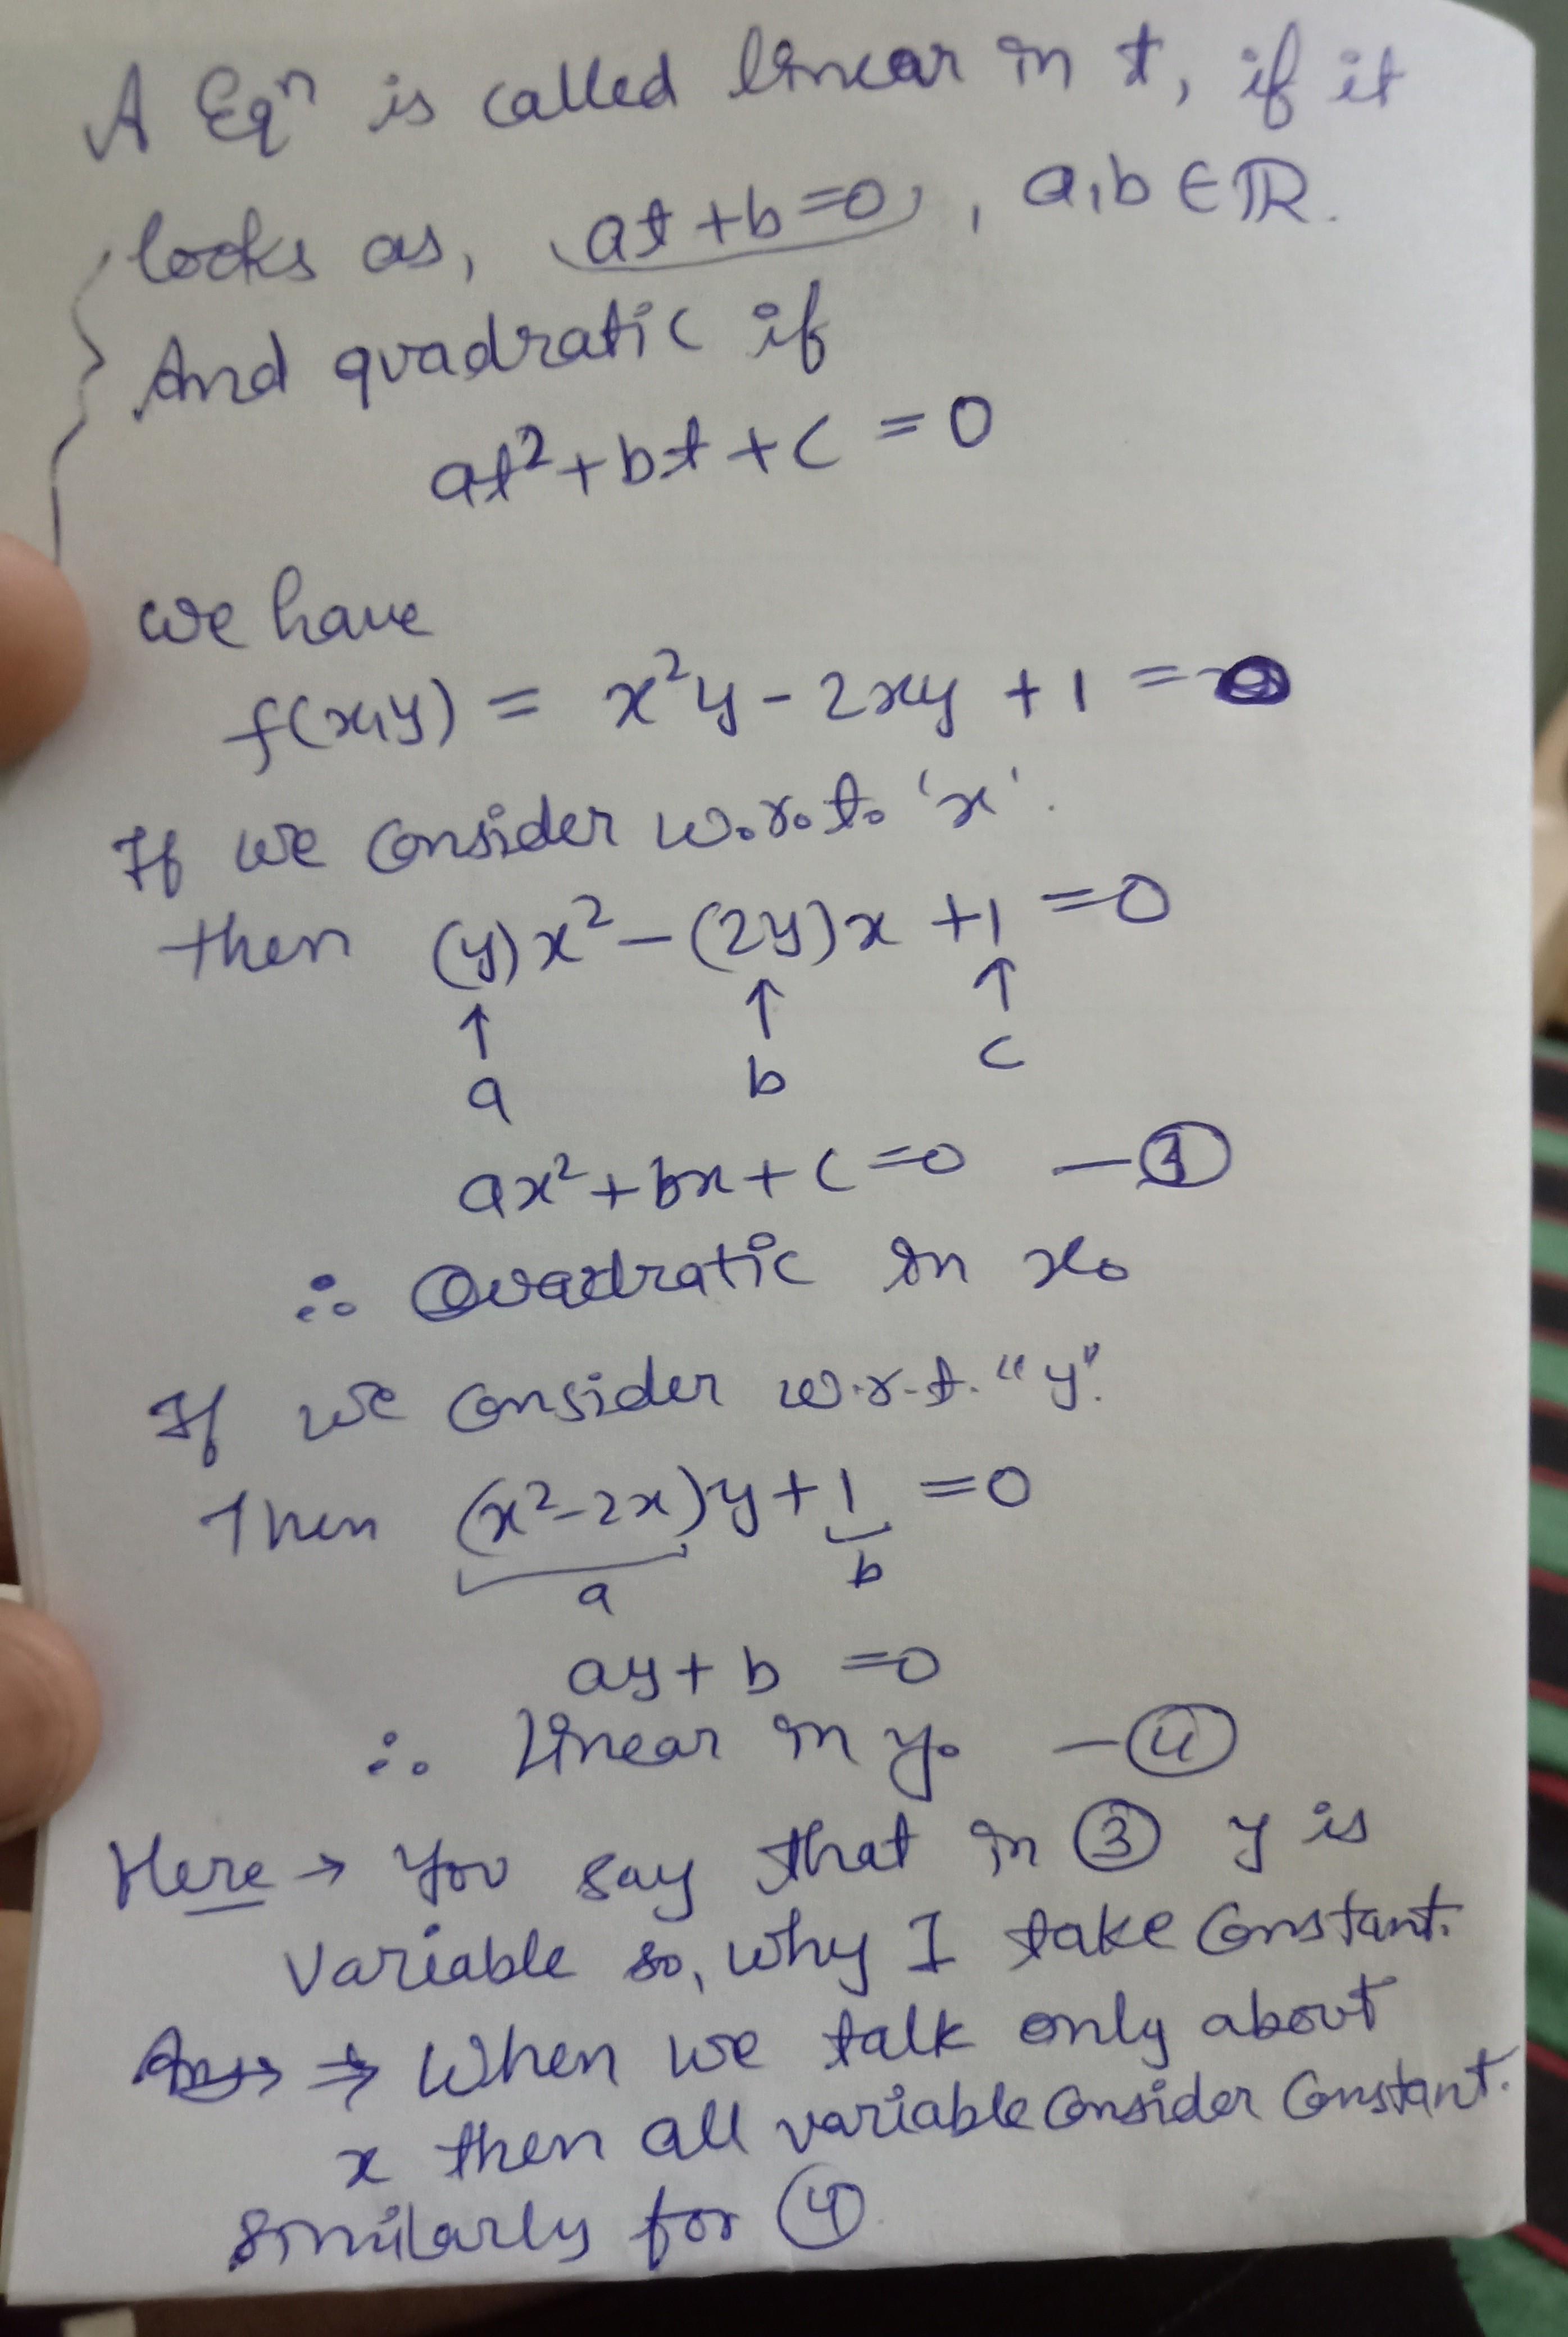 A Eqⁿ is called linear in t, if it
looks as, at + b = 0, a, b ∈ ℝ.
And quadratic if
at² + bt + c = 0
we have
f(x,y) = x²y - 2xy + 1 =
If we consider w.r.to 'x'.
then (y)x² - (2y)x + 1 = 0
↑ ↑ ↑
a b c
ax² + bx + c = 0 — ③
∴ Quadratic in x.
If we consider w.r.t. "y".
Then (x²-2x)y + 1 = 0
a b
ay + b = 0
∴ Linear in y. — ④
Here → You say that in ③ y is
variable so, why I take constant.
⇒ When we talk only about
x then all variable consider constant.
similarly for ④